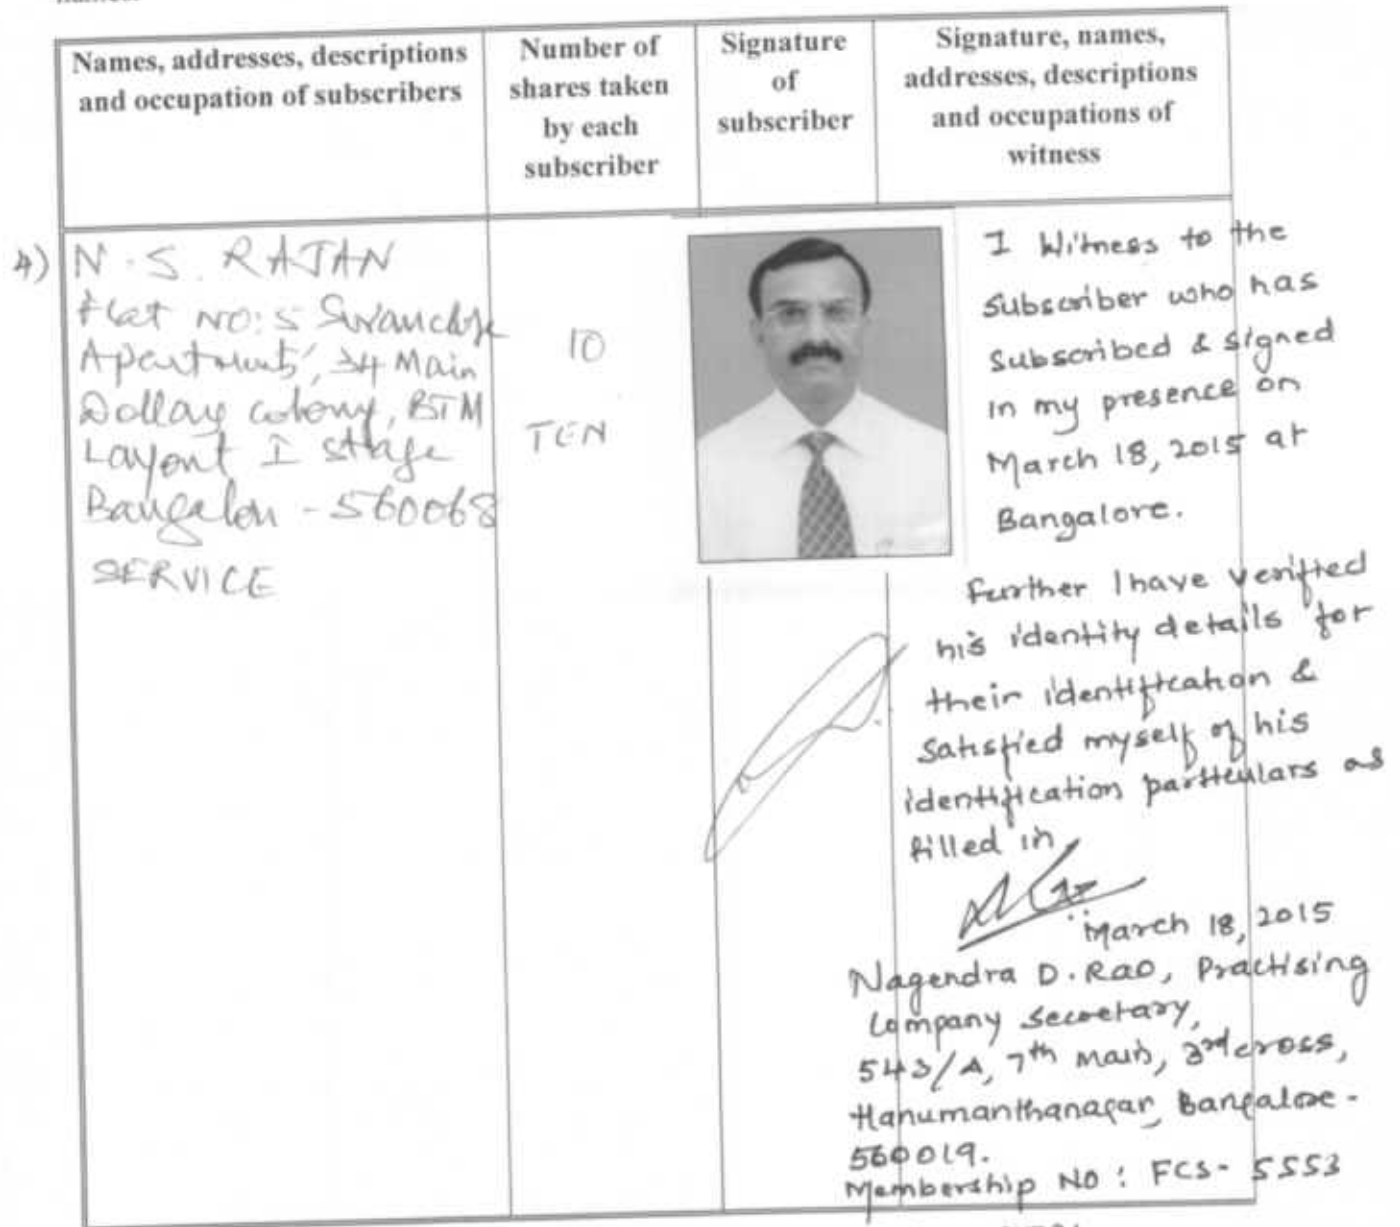 Names, addresses, descriptions
and occupation of subscribers
Number of
shares taken
by each
subscriber
Signature
of
subscriber
Signature, names,
addresses, descriptions
and occupations of
witness
4) N.S. RAJAN
Flat NO: 5
Apartments, 34 Main
Dollar colony, BTM
Layout I stage
Bangalore - 560068
SERVICE
10
TEN
I Witness to the
subscriber who has
Subscribed & signed
in my presence on
March 18, 2015 at
Bangalore.
Further I have verified
his identity details for
their identification &
Satisfied myself of his
identification particulars as
filled in
March 18, 2015
Nagendra D. Rao, Practising
Company Secretary,
543/A, 7th Main, 3rd cross,
Hanumanthanagar, Bangalore -
560019.
Membership No: FCS- 5553